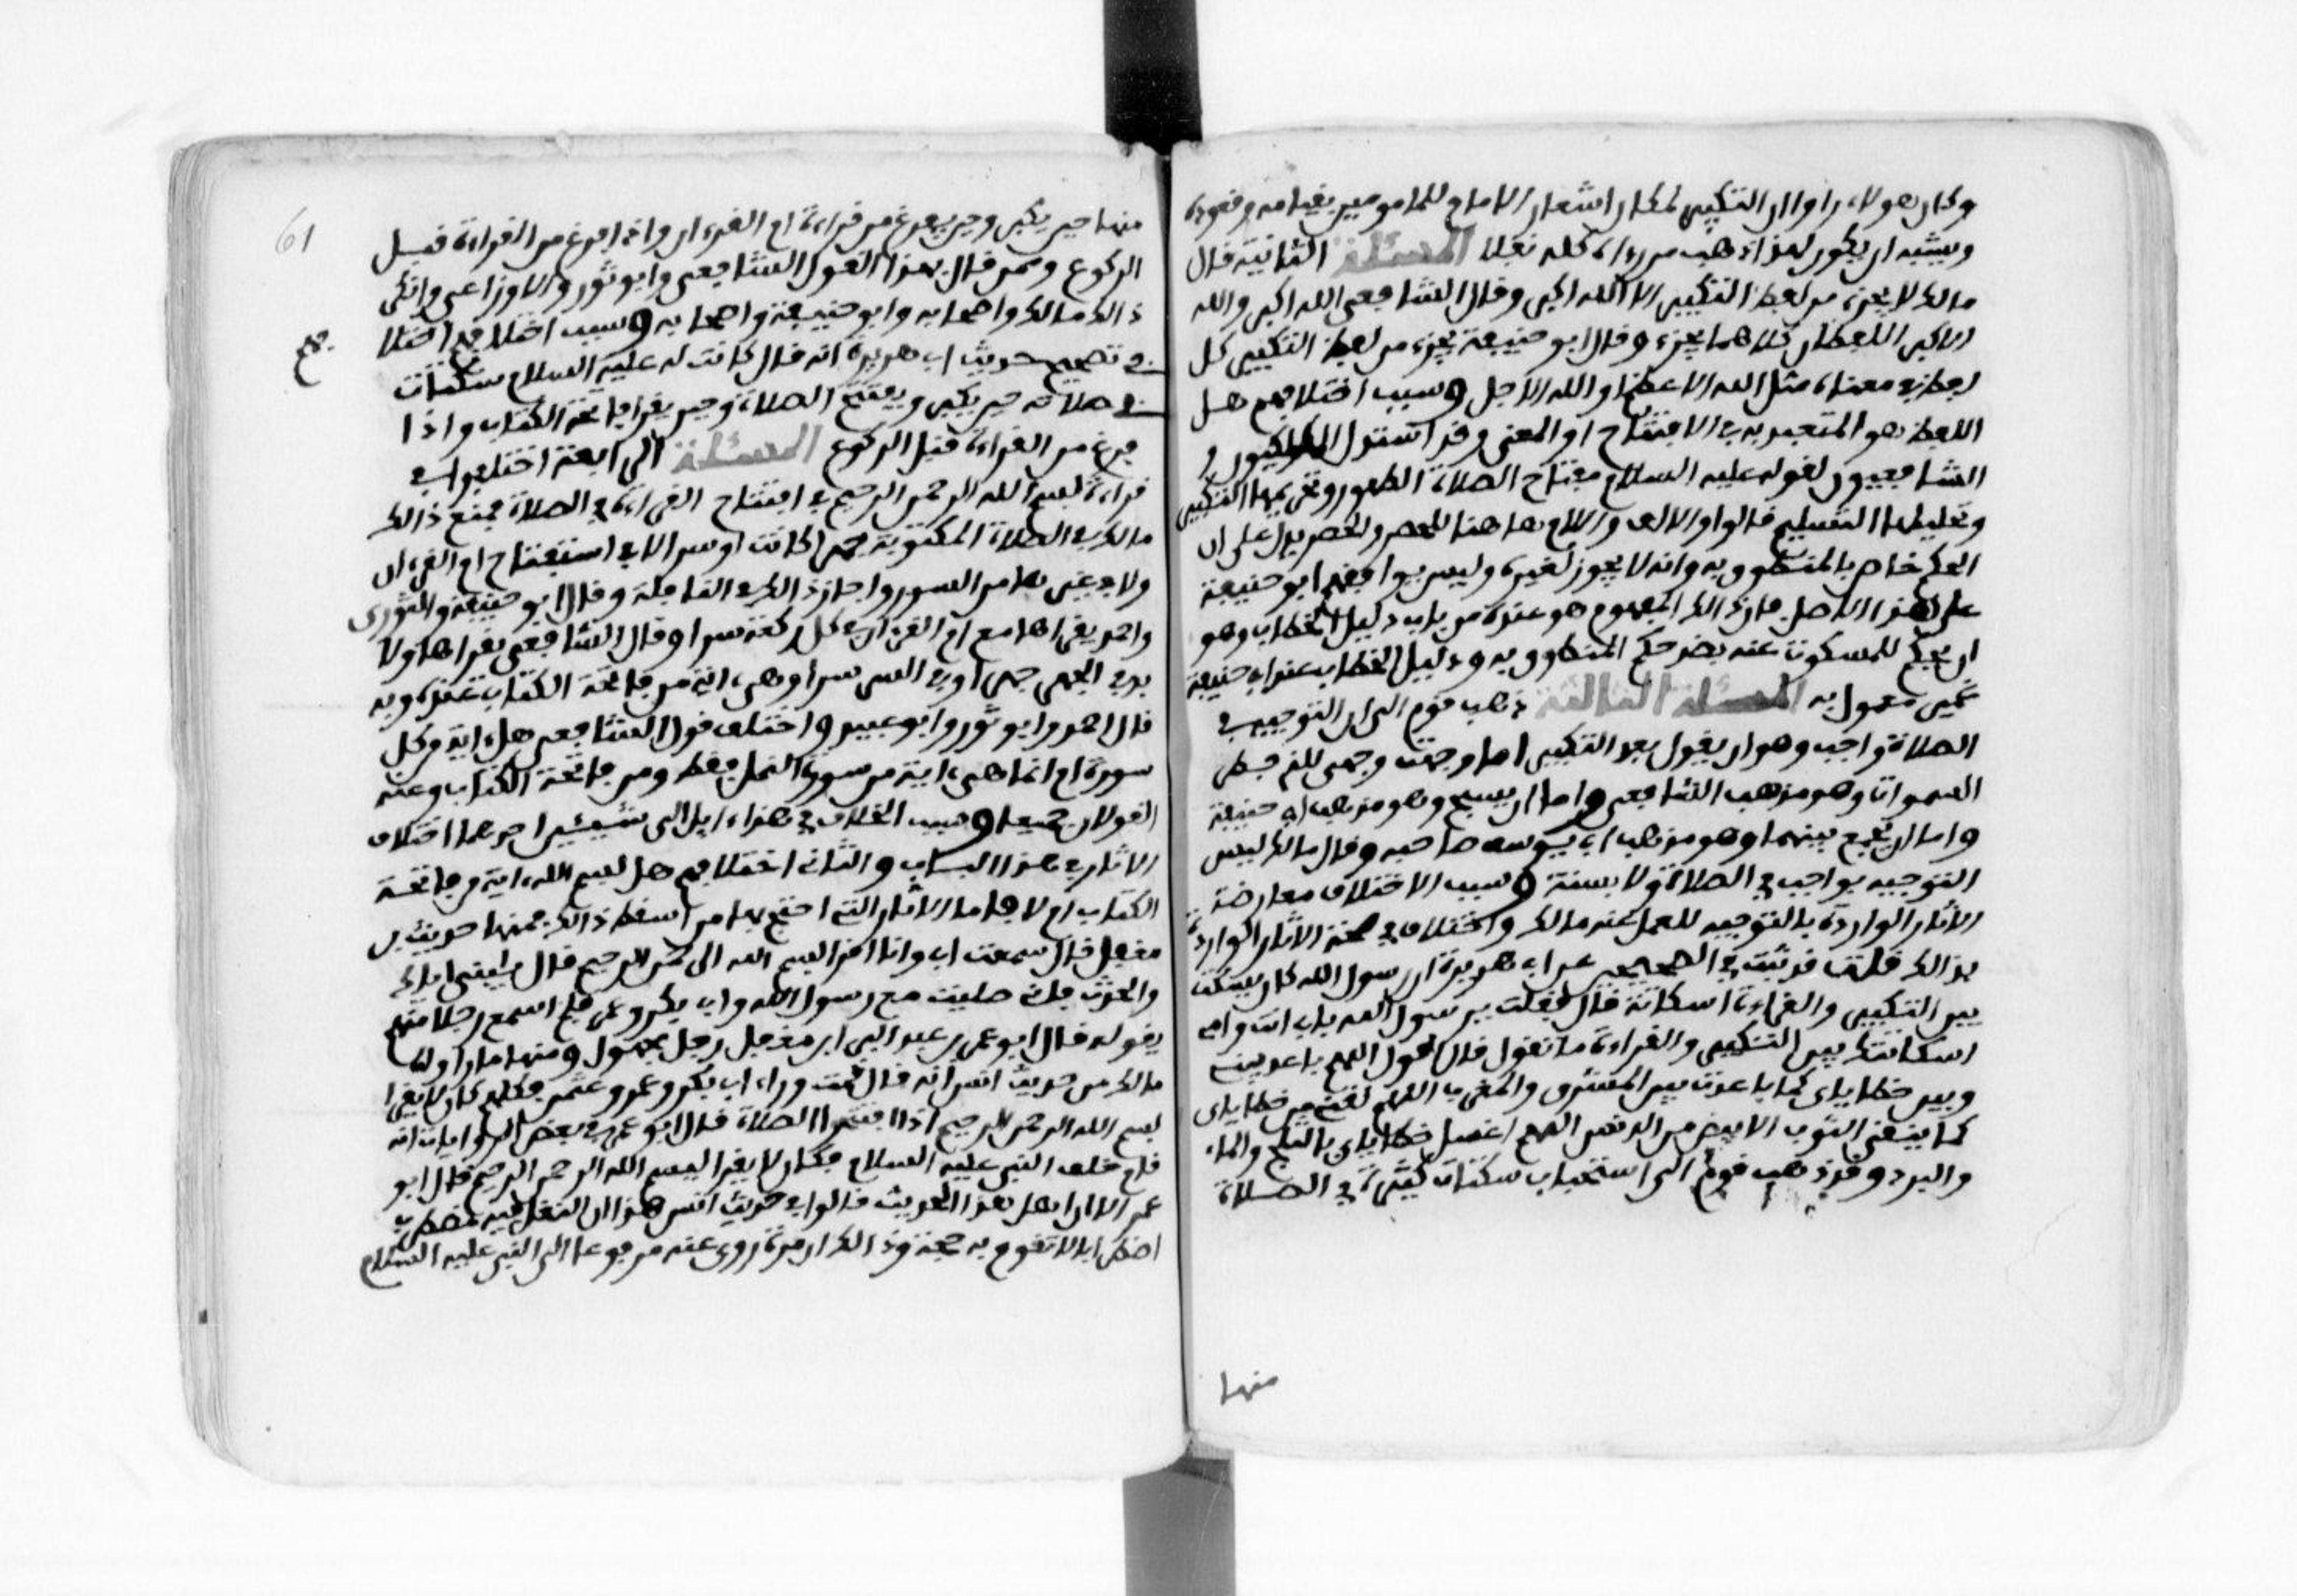 وكان هولاء راوا ان التكبير لمكان اشعار الامام للمامومين بقيامه وقعوده
ويشبه ان يكون لهذا ذهب من رءاه كله نفلا المسئلة الثانية قال
مالك لا يجزء من لفظ التكبير الا الله اكبر وقال الشافعى الله اكبر والله
الاكبر اللفظان كلاهما يجزء وقال ابو حنيفة يجزء من لفظ التكبير كل
لفظ في معناه مثل الله الاعظم والله الاجل وسبب اختلافهم هل
اللفظ هو المتعبد به في الافتتاح او المعنى وقد استدل المالكيون و
الشافعيون لقوله عليه السلام مفتاح الصلاة الطهور وتحريمها التكبير
وتحليلها التسليم قالوا والالف واللام هاهنا للحصر والحصر يدل على ان
الحكم خاص بالمنطوق به وانه لا يجوز لغيره وليس يوافقهم ابو حنيفة
على هذا الاصل فان ذالك المفهوم هو عنده من باب دليل الخطاب وهو
ان يحكم للمسكوت عنه بضد حكم المنطوق به ودليل الخطاب عند ابى حنيفة
غير معمول به المسئلة الثالثة ذهب قوم الى ان التوجيه في
الصلاة واجب وهو ان يقول بعد التكبير اما وجهت وجهى للذى فطر
السموات وهو مذهب الشافعى واما ان يسبح وهو مذهب ابى حنيفة
واما ان يجمع بينهما وهو مذهب ابى يوسف صاحبه وقال مالك ليس
التوجيه بواجب في الصلاة ولا بسنة وسبب الاختلاف معارضة
الاثار الواردة بالتوجيه للعمل عند مالك واختلاف في صحة الاثار الواردة
بذالك قلت قد ثبت في الصحيحين عن ابى هريرة ان رسول الله كان يسكت
بين التكبير والقراءة اسكاتة قال فقلت يرسول الله بابى انت وامى
اسكاتتك بين التكبير والقراءة ما تقول قال اقول اللهم باعد بينى
وبين خطاياى كما باعدت بين المشرق والمغرب اللهم نقنى من خطاياى
كما ينقى الثوب الابيض من الدنس اللهم اغسل خطاياى بالثلج والماء
والبرد وقد ذهب قوم الى استحباب سكتات كثيرة في الصلاة
منها
61
منها حين يكبر وحين يفرغ من قراءة ام القرءان واذا فرغ من القراءة قبل
الركوع وممن قال بهذا القول الشافعى وابو ثور والاوزاعى وانكر
ذالك مالك واصحابه وابو حنيفة واصحابه وسبب اختلافهم اختلا
فهم
في تصحيح حديث ابى هريرة انه قال كانت له عليه السلام سكتات
في صلاته حين يكبر ويفتتح الصلاة وحين يقرا فاتحة الكتاب واذا
فرغ من القراءة قبل الركوع المسئلة الرابعة اختلفوا في
قراءة بسم الله الرحمن الرحيم في افتتاح القراءة في الصلاة فمنع ذالك
مالك في الصلاة المكتوبة جهرا كانت او سرا لا في استفتاح ام القرءان
ولا في غيرها من السور واجاز ذالك في النافلة وقال ابو حنيفة والثورى
واحمد يقراها مع ام القرءان في كل ركعة سرا وقال الشافعى يقراها ولا
بد في الجهر جهرا وفي السر سرا وهى ءاية من فاتحة الكتاب عنده وبه
قال احمد وابو ثور وابو عبيد واختلف قول الشافعى هل ءاية من كل
سورة ام انما هى ءاية من سورة النمل فقط ومن فاتحة الكتاب وعنه
القولان جميعا وسبب الخلاف في هذا ءايل الى شيئين احدهما اختلاف
الاثار في هذا الباب والثانى اختلافهم هل بسم الله ءاية من فاتحة
الكتاب ام لا فاما الاثار التى احتج بها من اسقط ذالك فمنها حديث بن
مغفل قال سمعنى ابى وانا اقرا بسم الله الرحمن الرحيم قال يبنى اياك
والحدث فانى صليت مع رسول الله وابى بكر وعمر فلم اسمع رجلا منهم
يقوله قال ابو عمر بن عبد البر ابن مغفل رجل مجهول ومنها ما رواه
مالك من حديث انس انه قال قمت وراء ابى بكر وعمر وعثمن فكلهم كان لا يقرا
بسم الله الرحمن الرحيم اذا افتتحوا الصلاة قال ابو عمر في بعض الروايات انه
قام خلف النبى عليه السلام فكان لا يقرا بسم الله الرحمن الرحيم قال ابو
عمر الا ان اهل هذا الحديث قالوا في حديث انس هذا ان النقل فيه مضطرب
اضطرابا لا تقوم به حجة وذالك ان مرة روى عنه مرفوعا الى النبى عليه السلام